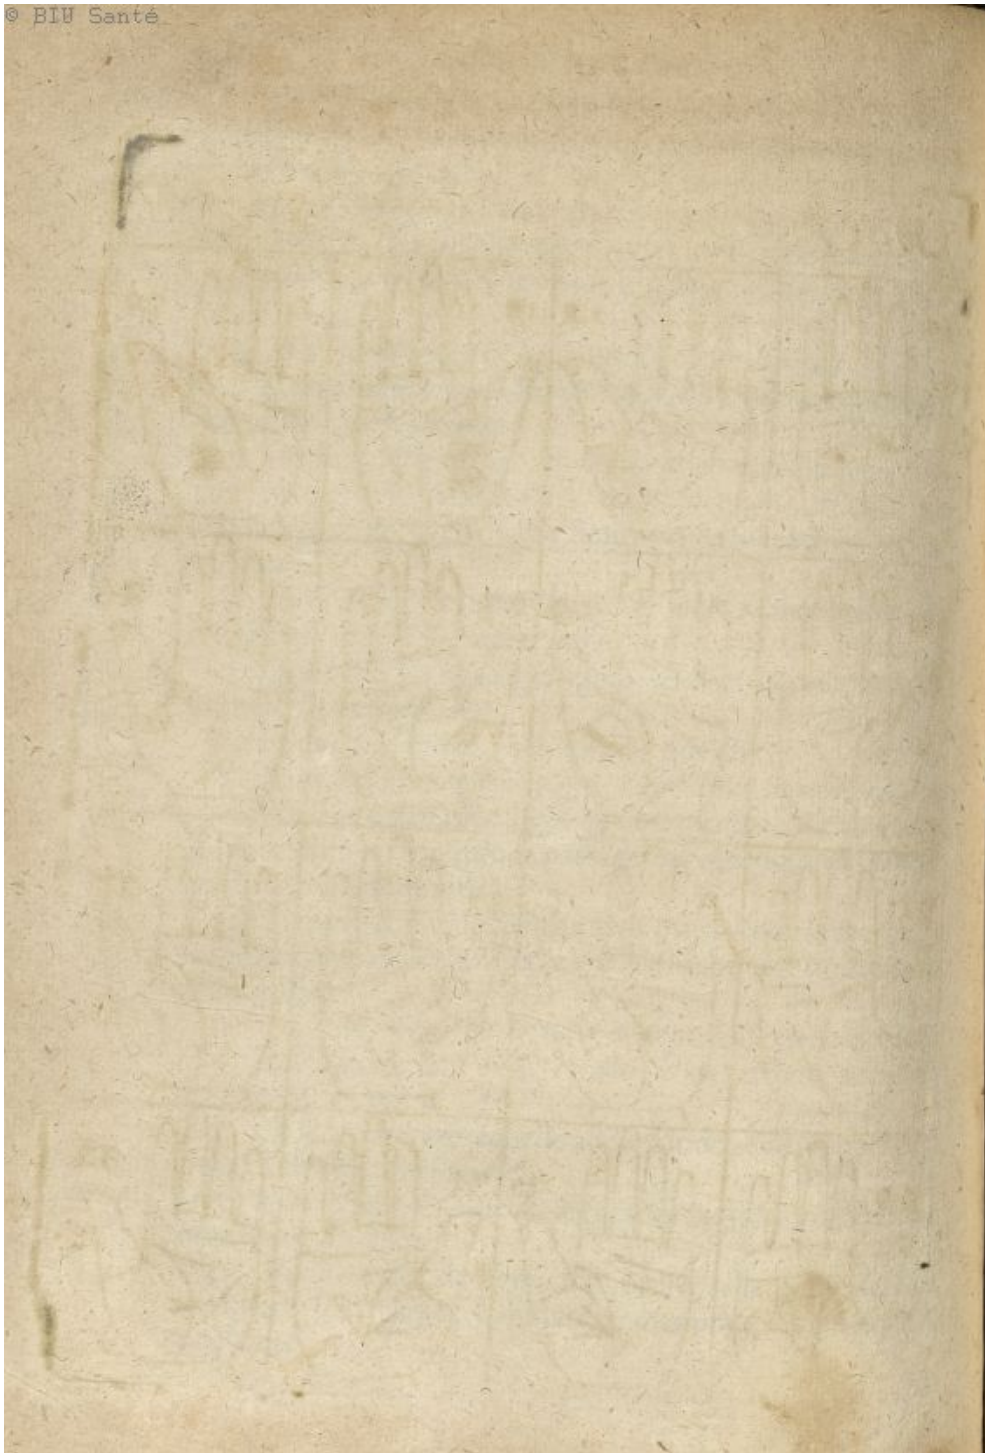 © BIU Santé